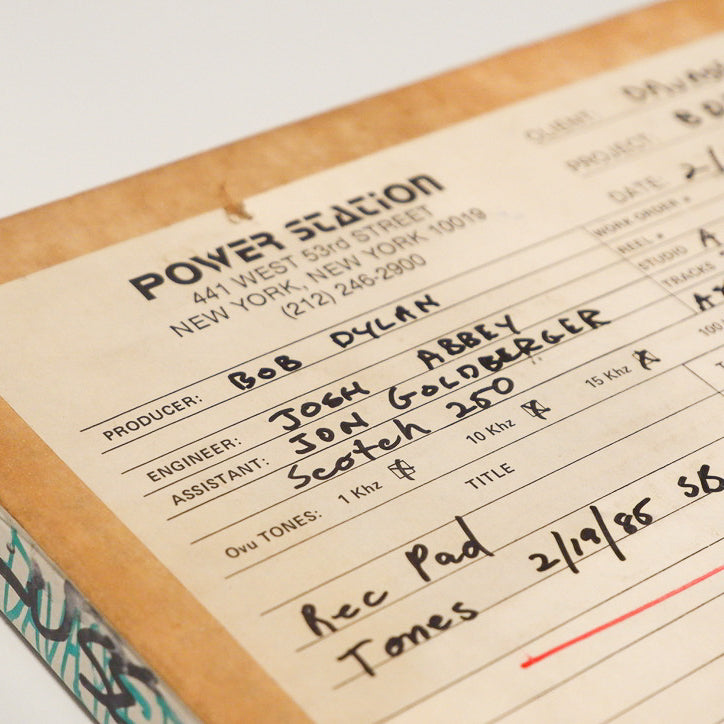 POWER STATION
441 WEST 53rd STREET
NEW YORK, NEW YORK 10019
(212) 246-2900
CLIENT:
PROJECT:
DATE: 2/
WORK ORDER #
REEL #
STUDIO A
TRACKS
PRODUCER: BOB DYLAN
ENGINEER: JOSH ABBEY
ASSISTANT: JON GOLDBERGER
Scotch 250
Ovu TONES: 1 Khz 10 Khz 15 Khz 100
TITLE
Rec Pad 2/19/85 SB
Tones